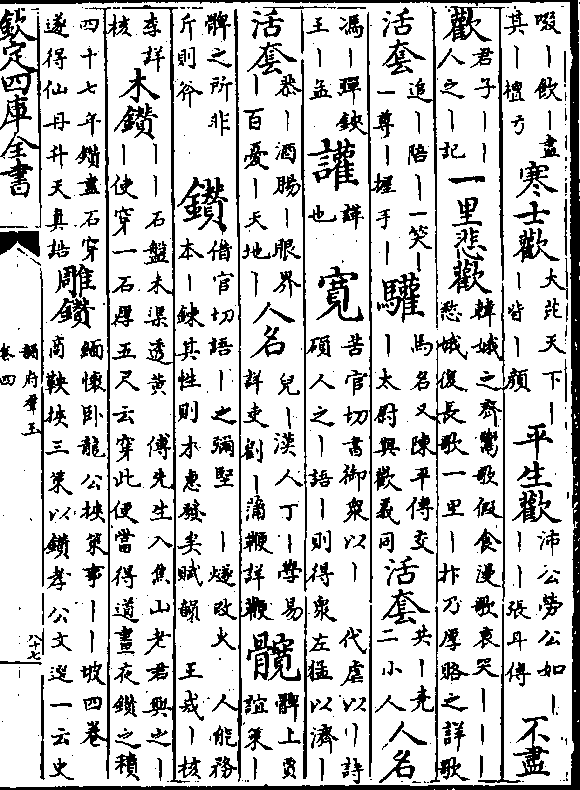 啜丨飲丨盡其丨檀弓 寒士歡 大庇天下丨丨皆丨顔 平生歡 沛公勞公如丨丨丨張耳傳 不盡
歡 君子丨丨人之丨丨記 一里悲歡 韓娥之齊鬻歌假食漫歌哀哭丨丨丨丨愁娥復長歌一里丨抃乃厚賂之詳歌
活套 追丨陪丨一笑丨一尊丨握手丨 驩 馬名又陳平傳交丨太尉與歡義同 活套 共丨堯二小人 人名
馮丨彈鋏王丨孟 讙 詳也 寛 苦官切書御衆以丨 代虐以丨詩碩人之丨語丨則得衆左猛以濟丨
活套 恭丨酒腸丨眼界丨百憂丨天地丨 人名 兒丨漢人丁丨學易詳吏劉丨蒲鞭詳鞭 髖 髀上賈誼策丨
髀之所非斤則斧 鑽 借官切語丨之彌堅 丨燧改火 人能務本丨錬其性則木惠發矣賦韻 王戎丨核
李詳核 木鑽 丨丨石盤未渠透黄 傅先生入焦山老君與之丨丨使穿一石厚五尺云穿此便當得道晝夜鑽之積
四十七年鑽盡石穿遂得仙丹升天真誥 雕鑽 緬懷卧龍公挾策事丨丨坡四卷商鞅挾三策以鑽孝公文選一云史
欽定四庫全書
韻府羣玉
卷四
八十七